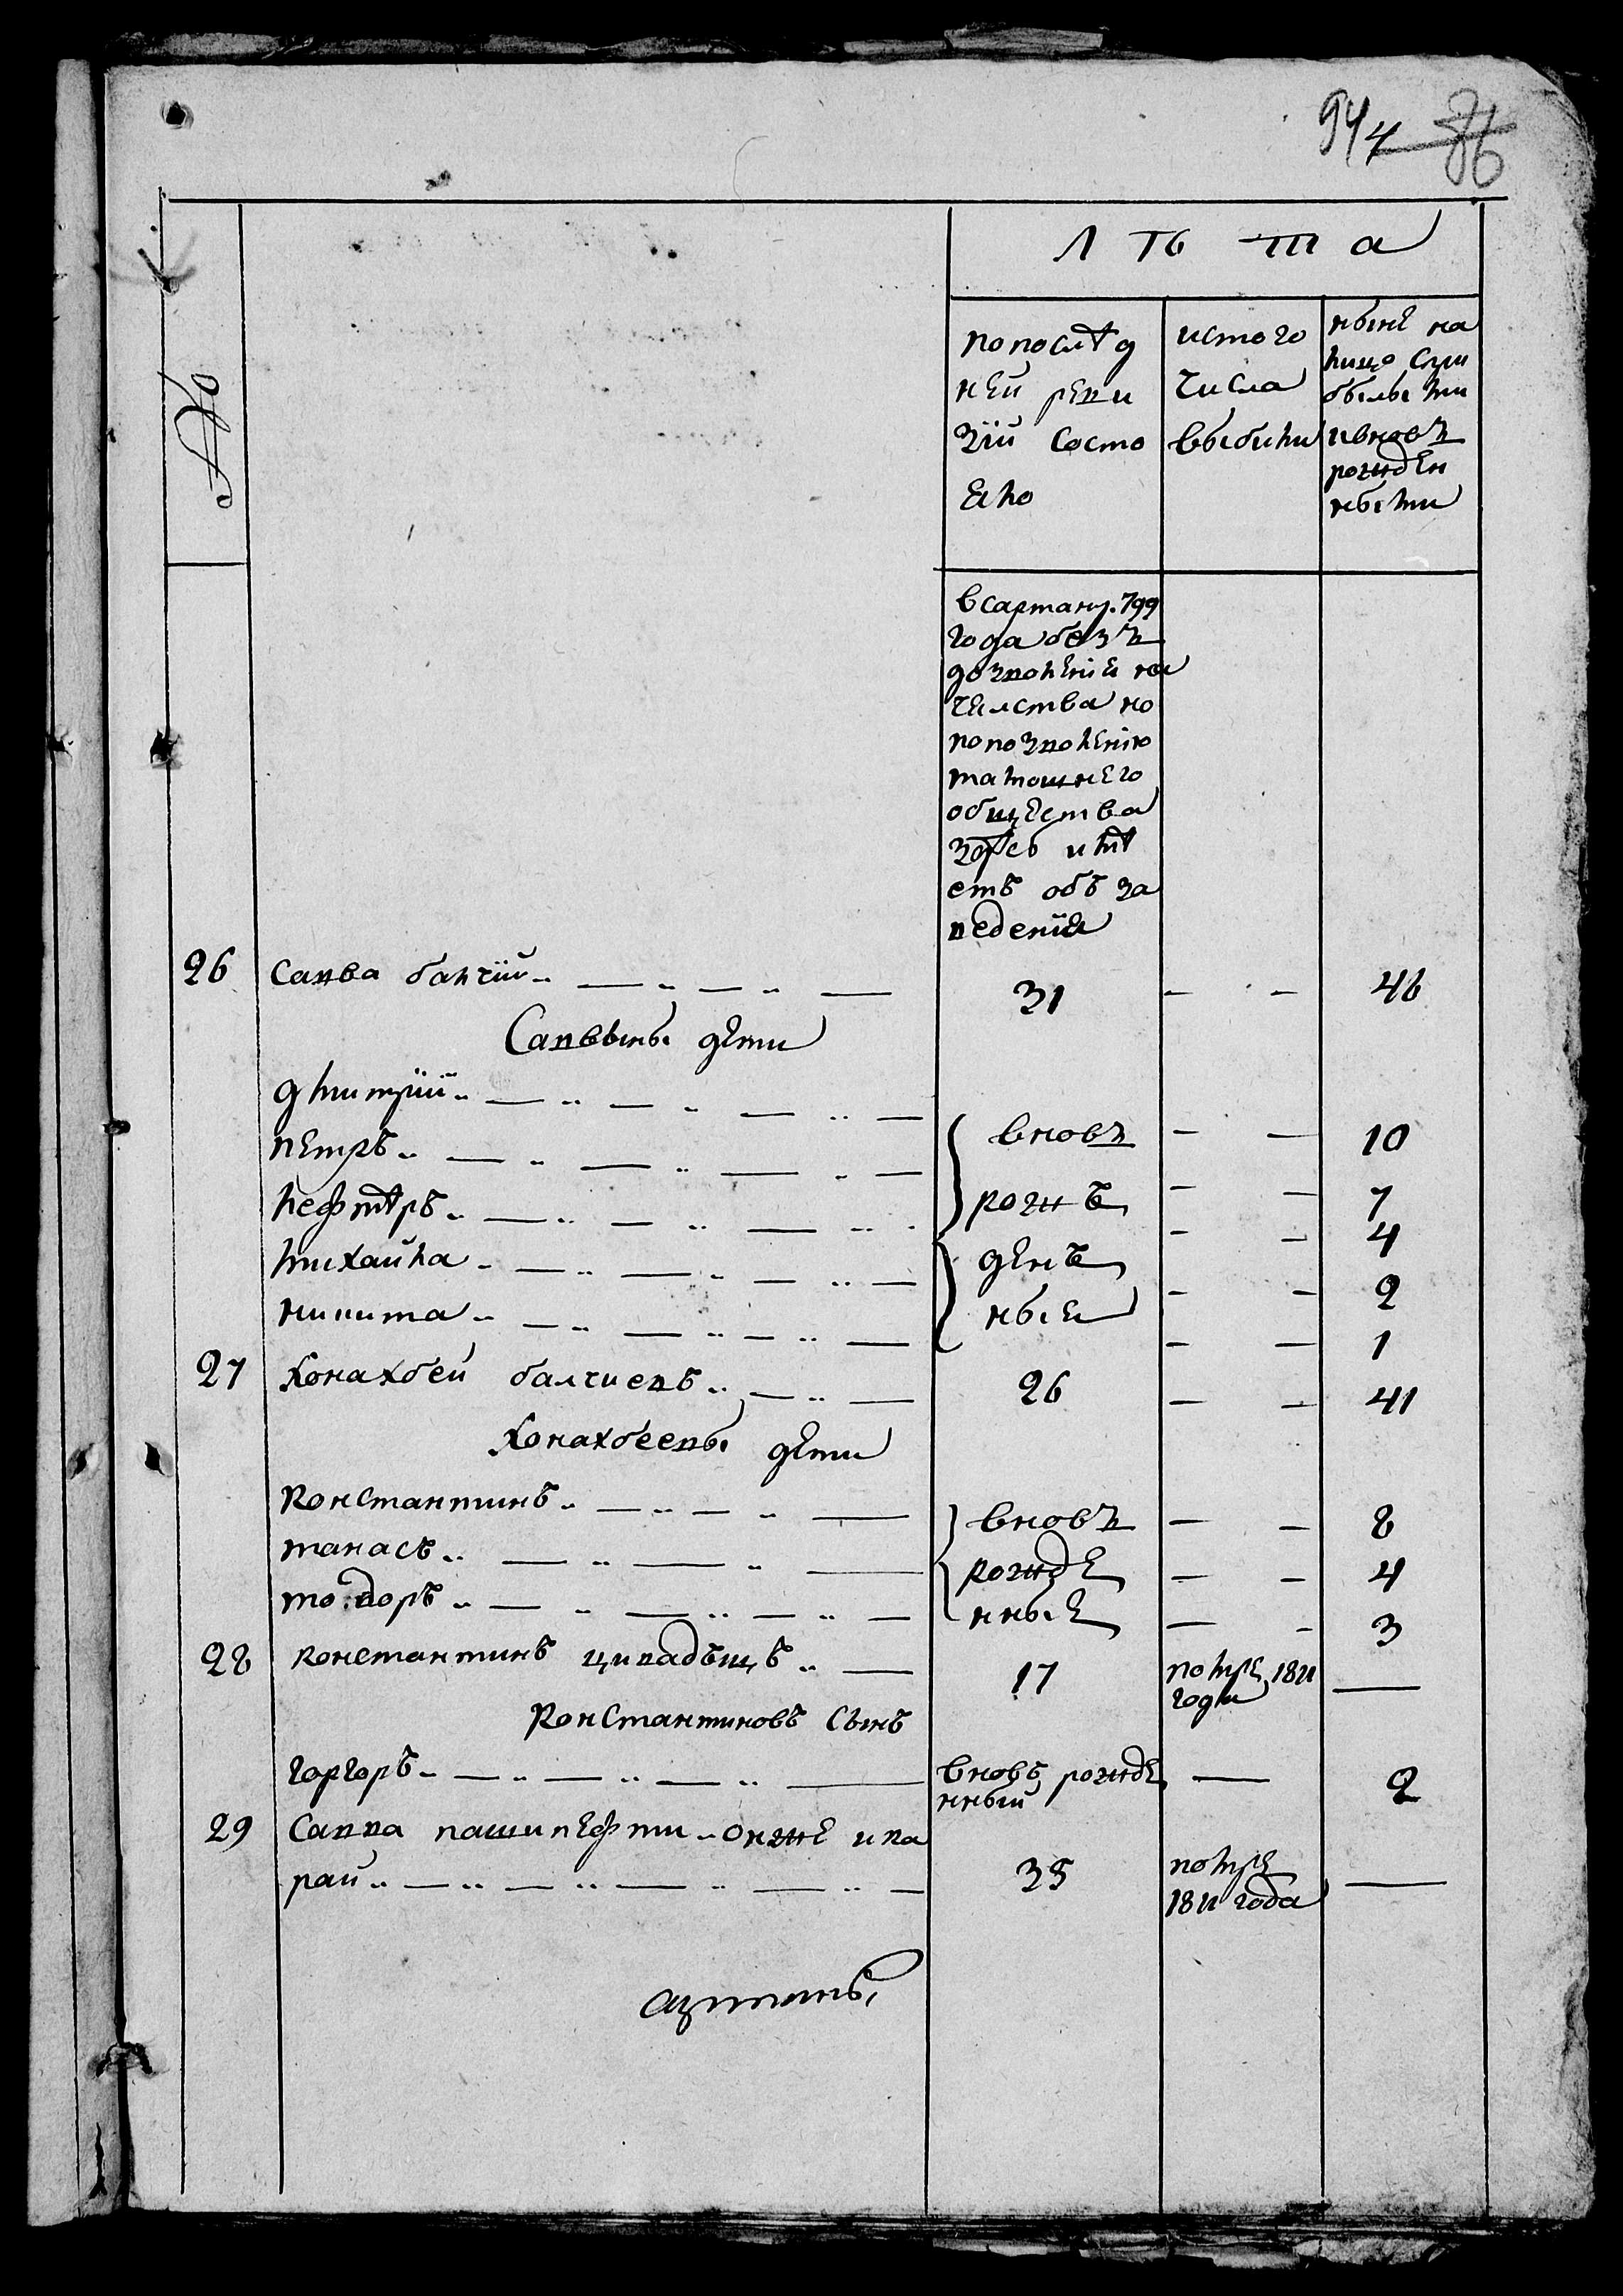 94
4 86
Лѣта
№
по послѣд
ней реви
зіи состо
ело
ис того
числа
выбили
ныне на
лицо с при
былыми
и вновь
рожден
ными
в сартану. 799
года безъ
дозволение на
челства но
по позволению
тамошнего
общества
здѣсь имѣ
етъ об за
ведения
26 Савва балчій 31 — — 46
Саввыны дети
дмитрій вновь — — 10
петръ рожъ — — 7
лефтѣръ — — 4
михайла денъ — — 2
никита ные — — 1
27 Конахбей балчиевъ 26 — — 41
Конахбеевы дети
константинъ вновь — — 8
танасъ рожде — — 4
тодоръ нные — — 3
28 константинъ 17 помре 1811 —
года
Константиновъ сынъ
горгоръ вновь рожде — 2
нный
29 Савва онже и ка
рай 35 помре —
1811 года